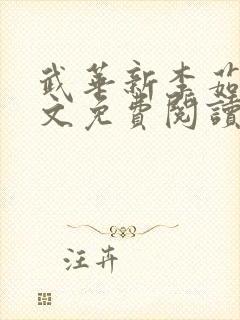 武華新李茹
文免費閱讀
汪卉